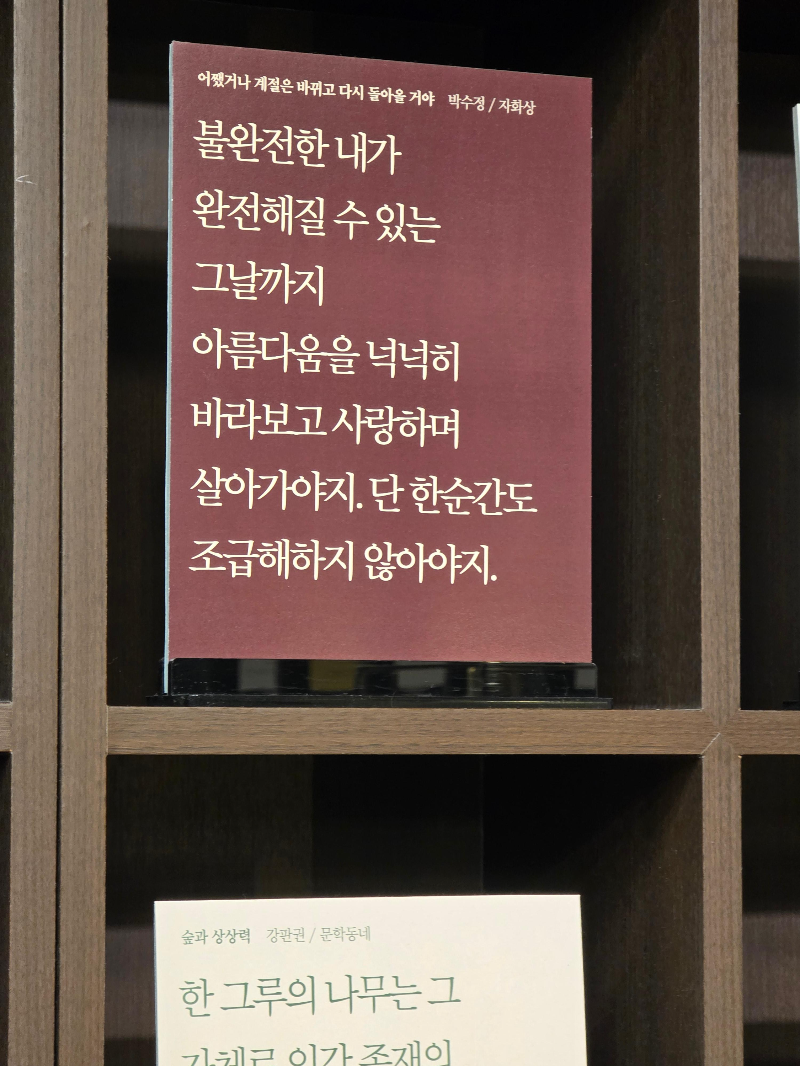 어쨌거나 계절은 바뀌고 다시 돌아올 거야 박수정 / 자화상
불완전한 내가
완전해질 수 있는
그날까지
아름다움을 넉넉히
바라보고 사랑하며
살아가야지. 단 한순간도
조급해하지 않아야지.
숲과 상상력 강판권 / 문학동네
한 그루의 나무는 그
자체로 인간 존재의